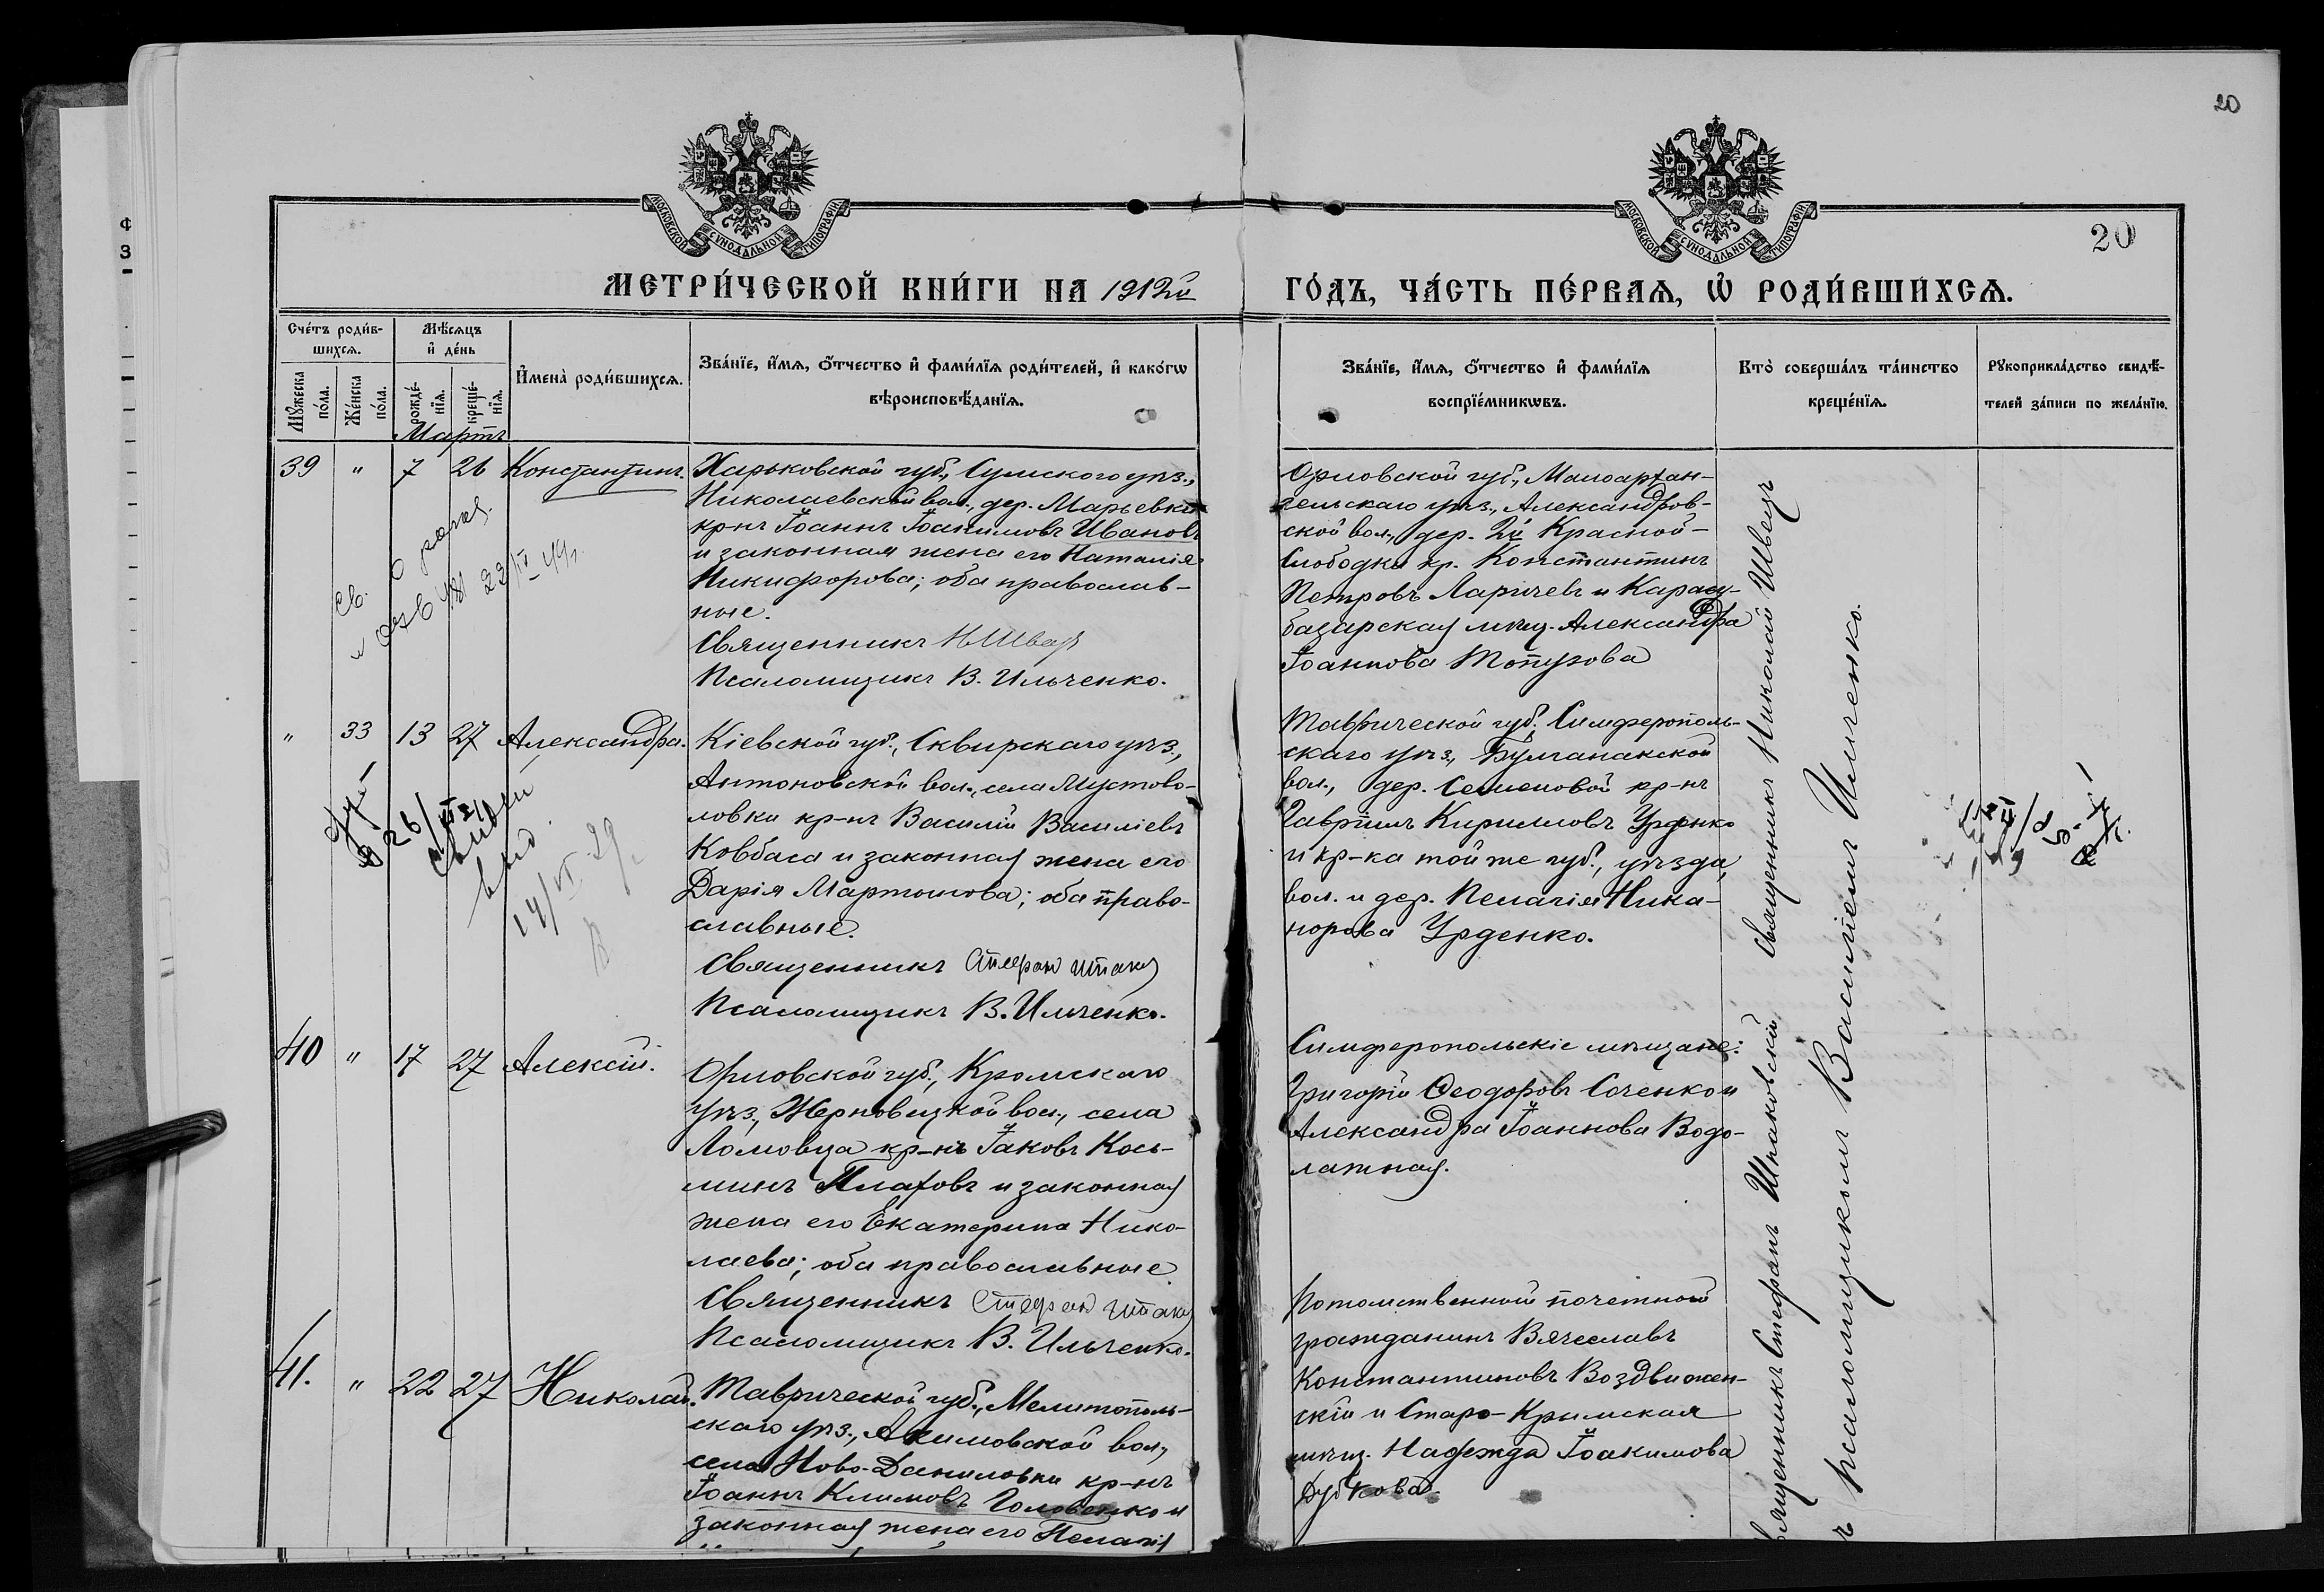 20
МОСКОВСКОЙ СѴНОДАЛЬНОЙ ТИПОГРАФІИ
МОСКОВСКОЙ СѴНОДАЛЬНОЙ ТИПОГРАФІИ
20
МЕТРИ́ЧЕСКОЙ КНИ́ГИ НА 1912й
ГО́ДЪ, ЧА́СТЬ ПЕ́РВАѦ, Ѡ҆ РОДИ́ВШИХСѦ.
Сче́тъ роди́в-
шихсѧ.
Мꙋ́жеска по́ла.
Же́нска по́ла.
Мѣ́сѧцъ
и҆ де́нь
рожде́-
нїѧ.
креще́-
нїѧ.
И҆мена̀ роди́вшихсѧ.
Зва́нїе, и҆́мѧ, ѻ҆́тчество и҆ фами́лїѧ роди́телей, и҆ како́гѡ
вѣроисповѣ́данїѧ.
Зва́нїе, и҆́мѧ, ѻ҆́тчество и҆ фами́лїѧ
воспрїе́мникѡвъ.
Кто̀ соверша́лъ та́инство
креще́нїѧ.
Рꙋкоприкла́дство свидѣ́-
телей за́писи по жела́нїю.
Мартъ
39 " 7 26 Константинъ.
Харьковской губ., Сумского уѣз.,
Николаевской вол., дер. Марьевки
крнъ Іоаннъ Іоакимовъ Ивановъ
и законная жена его Наталія
Никифорова; оба православ-
ные.
Священникъ Н Швец
Псаломщикъ В. Ильченко.
Орловской губ., Малоархан-
гельскаго уѣз., Александров-
ской вол., дер. 2й Красной-
Слободки кр. Константинъ
Петровъ Ларичевъ и Карасу-
базарская мѣщ. Александра
Іоаннова
" 33 13 27 Александра.
Кіевской губ., Сквирскаго уѣз.,
Антоновской вол., села Мустово-
ловки кр-нъ Василій Василіевъ
Ковбаса и законная жена его
Дарія Мартынова; оба право-
славные.
Священникъ Стефан Шпак
Псаломщикъ В. Ильченко.
14/VI 29
Таврической губ., Симферополь-
скаго уѣз., Булганакской
вол., дер. Семеновой кр-нъ
Гавріилъ Кирилловъ Урденко
и кр-ка той же губ., уѣзда,
вол. и дер. Пелагія Ника-
норова Урденко.
40 " 17 27 Алексій.
Орловской губ., Кромскаго
уѣз., Жерновецкой вол., села
Ломовца кр-нъ Іаковъ Кось-
минъ Плаховъ и законная
жена его Екатерина Нико-
лаева; оба православные
Священникъ Стефан Шпак
Псаломщикъ В. Ильченко.
Симферопольскіе мѣщане:
Григорій Ѳеодоровъ Соченко и
Александра Іоаннова Водо-
лажная.
41. " 22 27 Николай.
Таврической губ., Мелитополь-
скаго уѣз., Акимовской вол.,
села Ново-Даниловки кр-нъ
Іоаннъ Климовъ Головенко и
законная жена его Пелагія
Потомственный почетный
гражданинъ Вячеславъ
Константиновъ Воздвижен-
скій и Старо-Крымская
мѣщ. Надежда Іоакимова
Дубкова.
Священникъ Николай Швецъ
Священникъ Стефанъ Шпаковскій
псаломщикомъ Василіемъ Ильченко.